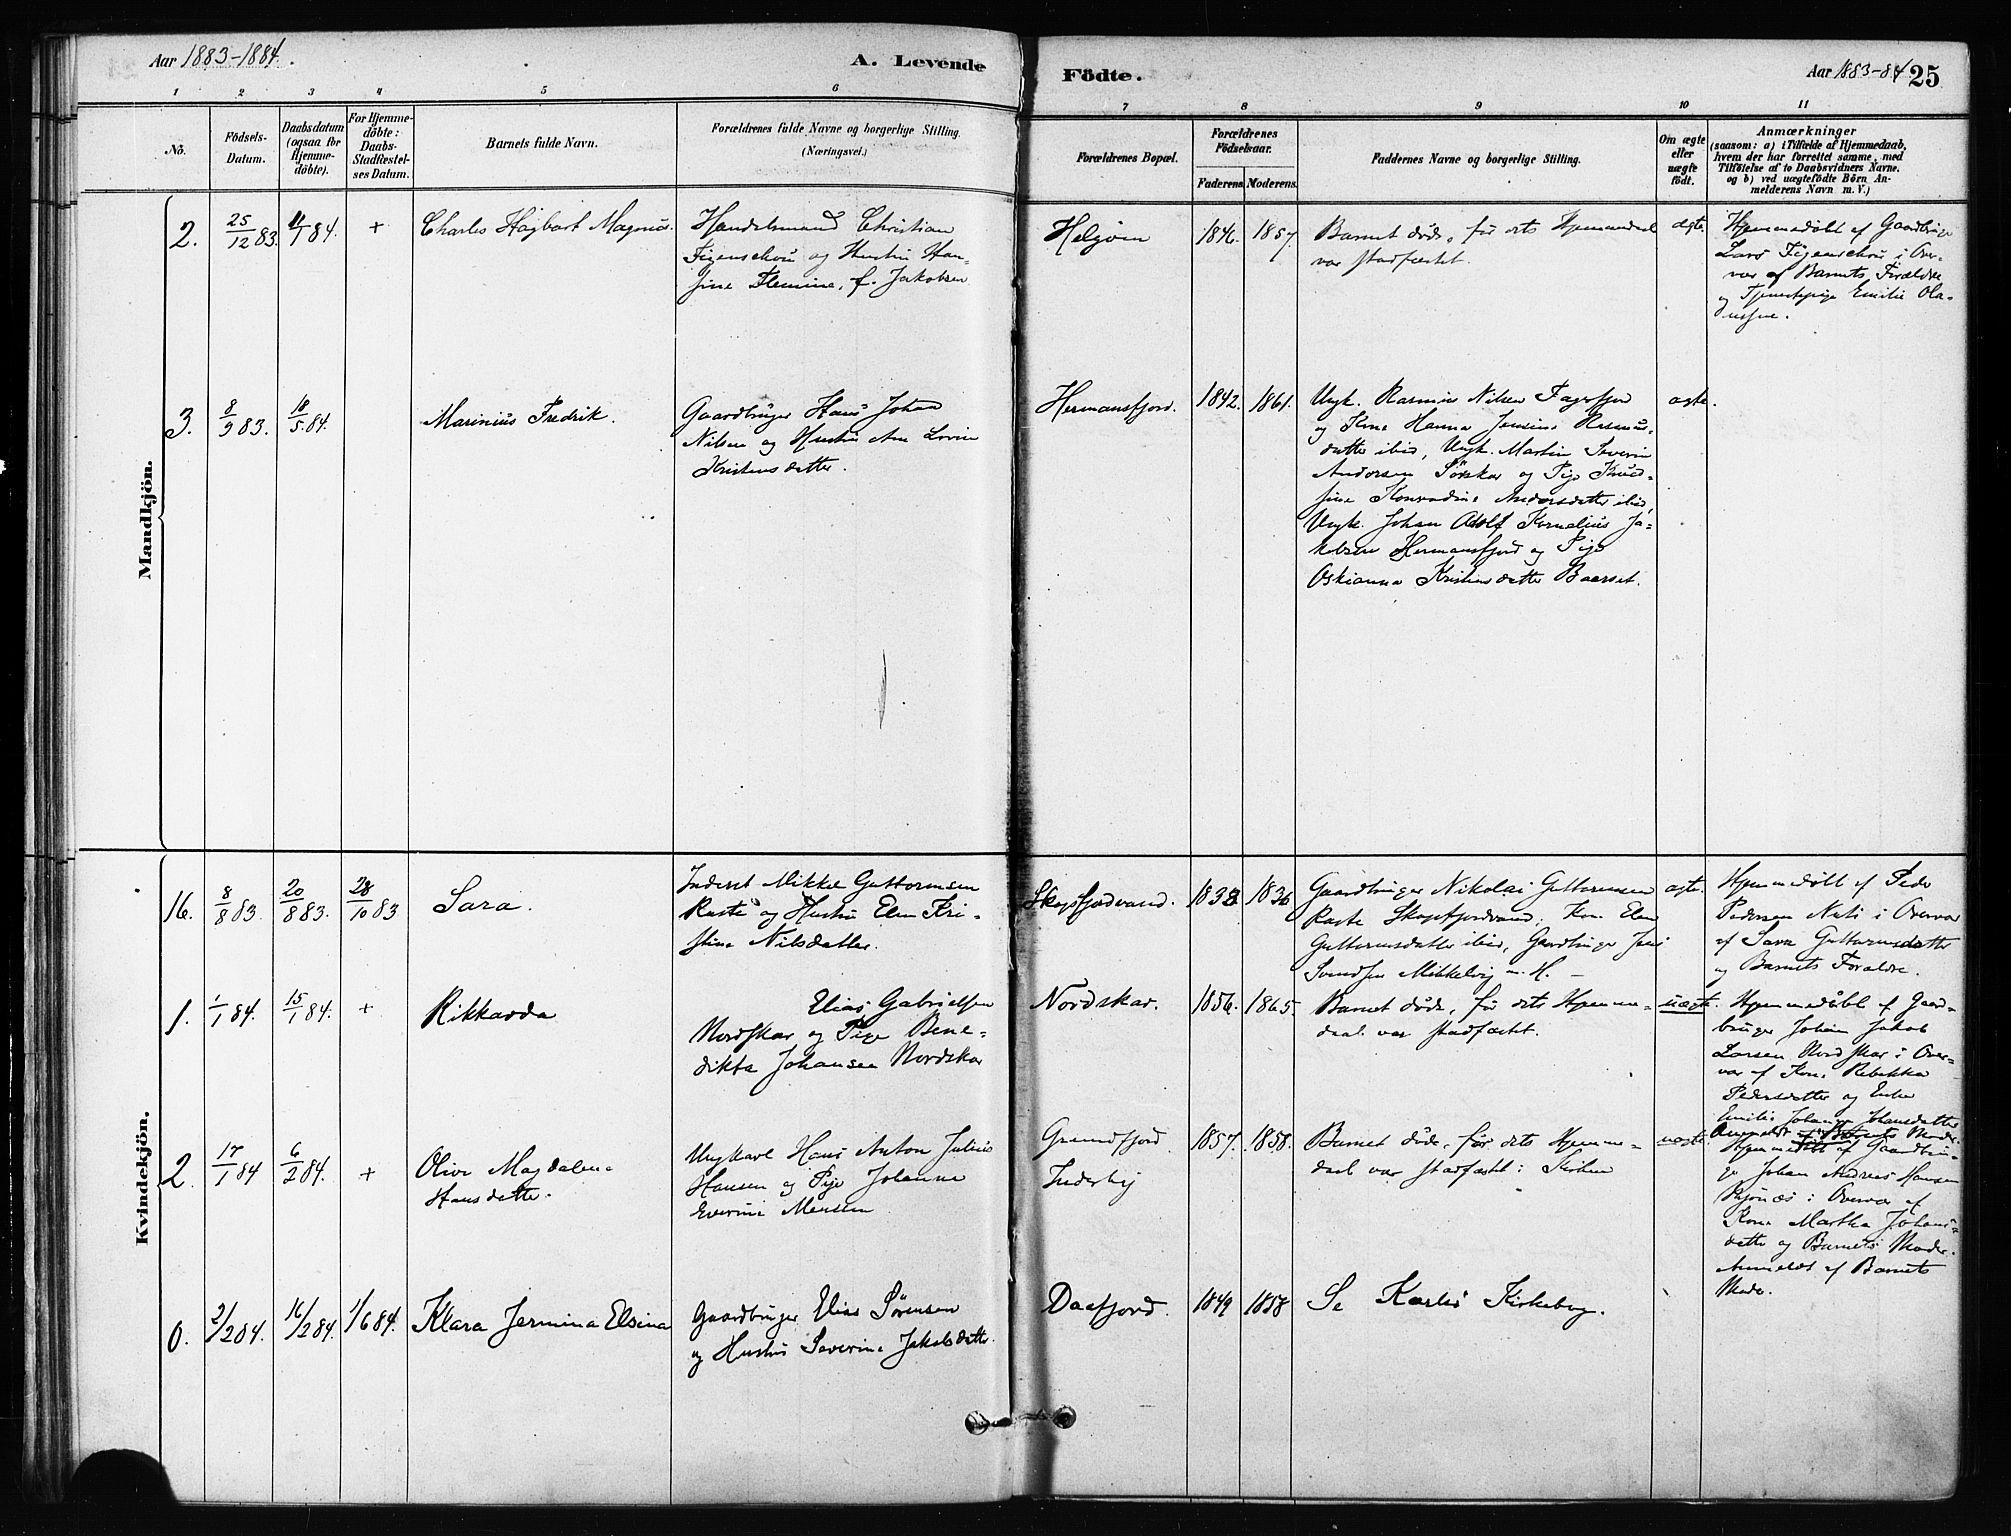 Aar 1883-1884.
A. Levende
Födte.
Aar 1883-84
25
1 2 3 4 5 6 7 8 9 10 11
No.
Födsels-
Datum.
Daabsdatum
(ogsaa for
Hjemme-
döbte).
For Hjemme-
döbte:
Daabs-
Stadfæstel-
ses Datum.
Barnets fulde Navn.
Forældrenes fulde Navne og borgerlige Stilling.
(Næringsvei.)
Forældrenes Bopæl.
Forældrenes
Födselsaar.
Faderens. Moderens.
Faddernes Navne og borgerlige Stilling.
Om ægte
eller
uægte
födt.
Anmærkninger
(saasom: a) i Tilfælde af Hjemmedaab,
hvem der har forrettet samme, med
Tilföielse af to Daabsvidners Navne.
og b) ved uægtefödte Börn An-
melderens Navn m. V.)
Mandkjön.
2.
25/12 83.
11/1 84.
+
Charles Hagbart Magnus.
Handelsmand Christian
Figenschou og Hustru Han-
sine Flemine, f. Jakobsen
Helgöen
1846.
1857.
Barnet döde, för dets Hjemmedaab
var stadfæstet.
ægte.
Hjemmedöbt af Gaardbruger
Lars Figenschou i Over-
vær af Barnets Forældre
og Tjenestepige Emilie Ola-
3.
8/9 83.
18/5 84.
Marinius Fredrik.
Gaardbruger Hans Johan
Nilsen og Hustru Ane Lovise
Kristensdatter.
Hermansfjord.
1842.
1861.
ægte.
Ungk. Rasmus Nilsen Fagerfjord
og Kone Hanna Jensine Rasmus-
datter ibid, Ungk. Martin Severin
Andersen Sörskar og Pige Knud-
sine Konradine Andersdatter ibid,
Ungk. Johan Adolf Kornelius Ja-
kobsen Hermansfjord og Pige
Oskianna Kristensdatter Baarset.
Kvindekjön.
16.
8/8 83.
20/8 83.
28/10 83
Sara.
Inderst Mikkel Guttormsen
Raste og Hustru Elen Kri-
stine Nilsdatter.
Skogsfjordvand.
1838
1836
Gaardbruger Nikolai Guttormsen
Raste Skogsfjordvand, Kone Elen
Guttormsdatter ibid, Gaardbruger Jens
Svendsen Mikkelvig m. H. –
ægte.
Hjemmedöbt af Peder
Pedersen Nuti i Overvær
af Sara Guttormsdatter
og Barnets Forældre.
1.
1/1 84.
15/1 84.
+
Rikkarda
Elias Gabrielsen
Nordskar og Pige Bene-
dikta Johansen Nordskar
Nordskar.
1856.
1865.
Barnet döde, för dets Hjemme-
daab var stadfæstet.
uægte.
Hjemmedöbt af Gaard-
bruger Johan Jakob
Larsen Nordskar i Over-
vær af Kone Rebekka
Pedersdatter og Enke
Emilie Johanna Johansdatter
Anmeldt af Barnets Moder.
2.
17/1 84
6/2 84.
+
Olive Magdalene
Hansdatter.
Ungkarl Hans Anton Julius
Hansen og Pige Johanna
Everine Mensen
Grundfjord
Inderby
1857.
1858.
Barnet döde, för dets Hjemme-
daab var stadfæstet i Kirken
uægte.
Hjemmedöbt af Gaardbru-
ger Johan Andreas Hansen
i Overvær af
Kone Martha Johans-
datter og Barnets Moder.
Anmeldt af Barnets
Moder.
0.
2/2 84.
16/2 84.
1/6 84.
Klara Jermina Elsina
Gaardbruger Elias Sörensen
og Hustru Severine Jakobsdatter.
Daafjord.
1849
1858
Se Karlsö Kirkebog.